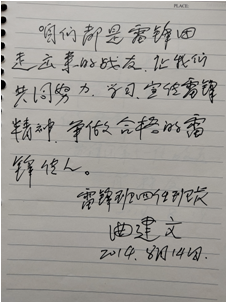 PLACE:
咱们都是雷锋团
走出来的战友,让我们
共同努力、学习、宣传雷锋
精神,争做合格的雷
锋传人。
雷锋班四任班长
曲建文
2014.8月14日.